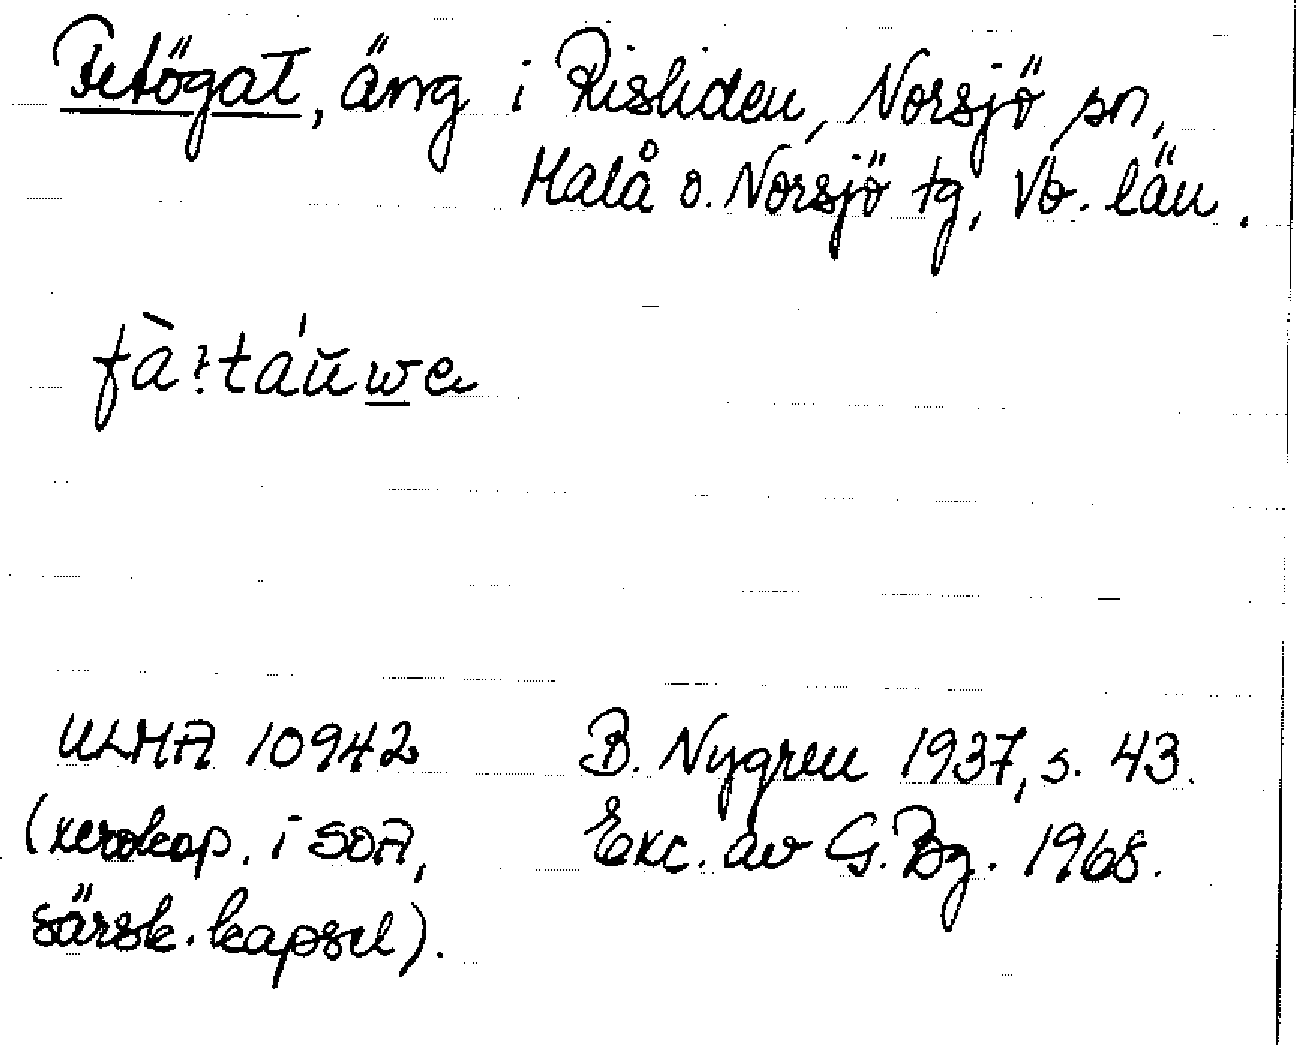 Fetögat, äng i Risliden, Norsjö sn,
Malå o. Norsjö tg, Vb. län.
ULMA 10942
(xerokop. i SOA,
särsk. kapsel).
B. Nygren 1937, s. 43.
Exc. av G. Bg. 1968.